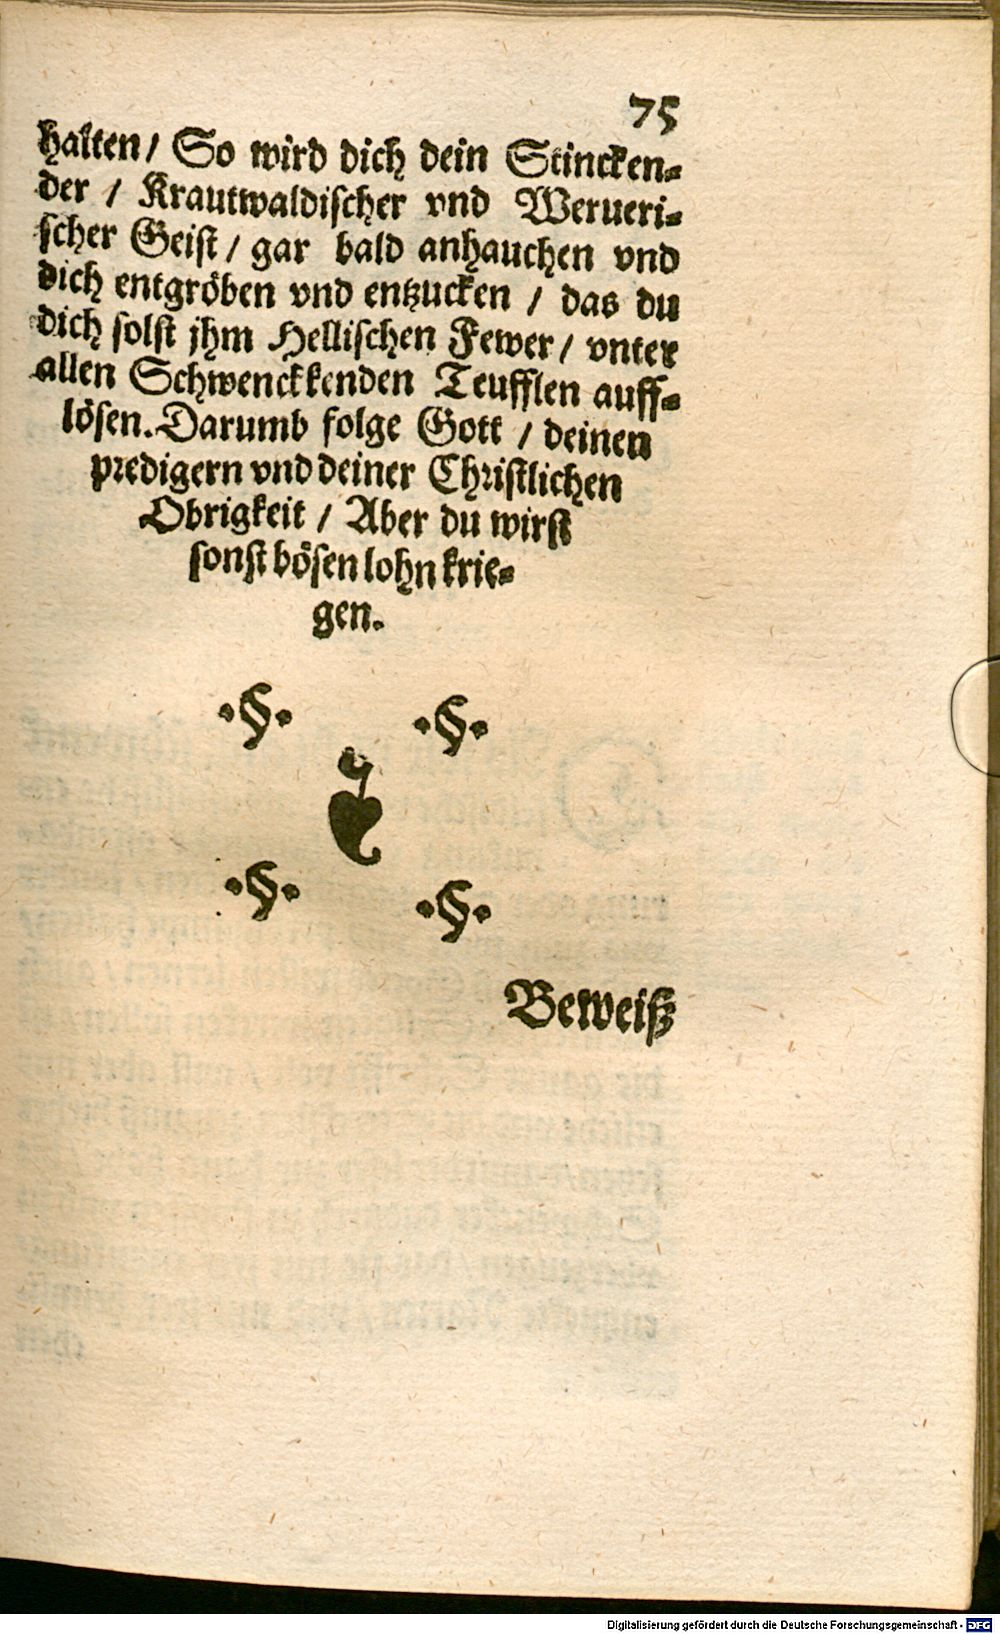 75
halten/ So wird dich dein Stincken⸗
der / Krautwaldischer vnd Werueri⸗
scher Geist / gar bald anhauchen vnd
dich entgröben vnd entzucken / das du
dich solst jhm Hellischen Fewer / vnter
allen Schwenckkenden Teufflen auff⸗
lösen. Darumb folge Gott / deinen
predigern vnd deiner Christlichen
Obrigkeit / Aber du wirst
sonst bösen lohn krie⸗
gen.
·§· ·§·
❦
·§· ·§·
Beweiß
Digitalisierung gefördert durch die Deutsche Forschungsgemeinschaft - DFG